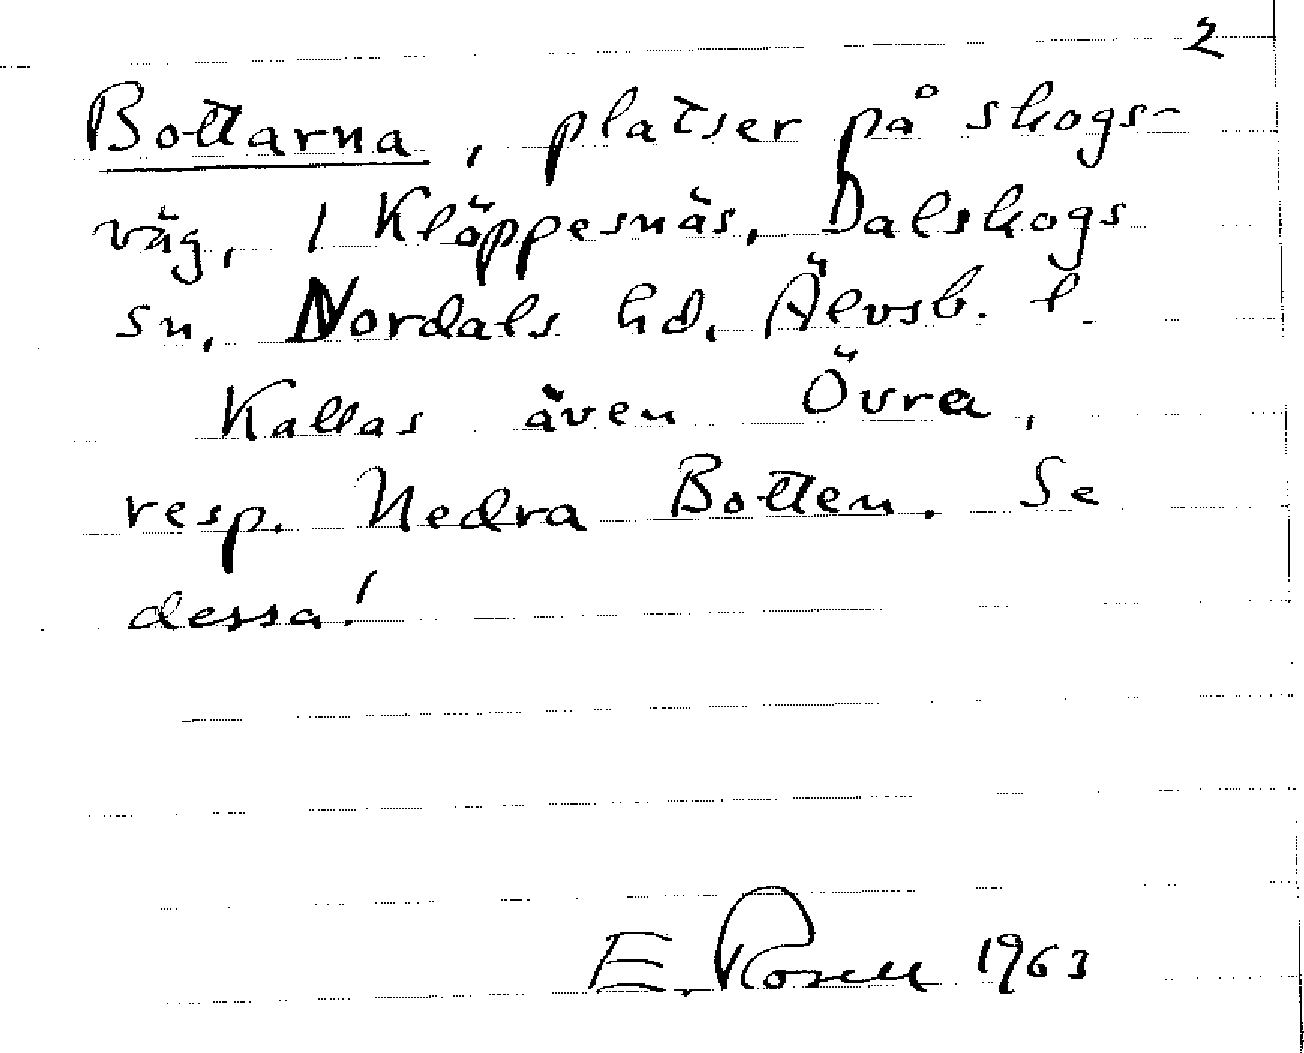 2
Bottarna, platser på skogs-
väg, 1 Kläppesnäs, Dalskogs
sn, Nordals hd, Älvsb. l.
Kallas även Övra,
resp. Nedra Botten. Se
dessa!
E. Rosell 1963